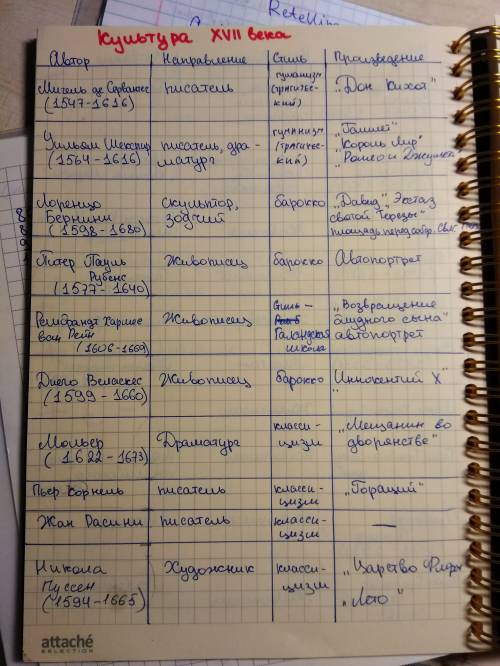 Retelling
Культура XVII века
Автор Направление Стиль Произведение
Мигель де Сервантес писатель гуманизм „Дон Кихот"
(1547-1616) (трагичес-
кий)
Уильам Шекспир писатель, дра- гуманизм „Гамлет"
(1564-1616) матург (трагичес- „Король Лир"
кий) „Ромео и Джульет."
Лоренцо скульптор, барокко „Давид", „Экстаз
Бернини зодчий святой Терезы"
(1598-1680) площадь перед собр. Свят.
Питер Пауль Живописец барокко Автопортрет
Рубенс
(1577-1640)
Рембрандт Харменс Живописец Стиль- „Возвращение
ван Рейн Галандская блудного сына"
(1606-1669) школа автопортрет
Диего Веласкес Живописец барокко „Иннокентий X"
(1599-1660)
Мольер Драматург класси- „Мещанин во
(1622-1673) цизм дворянстве"
Пьер Корнель писатель класси- „Гораций"
цизм
Жан Расини писатель класси- —
цизм
Никола Художник класси- „Царство Флоры
Пуссен цизм
(1594-1665) „Лето"
attaché
SELECTION